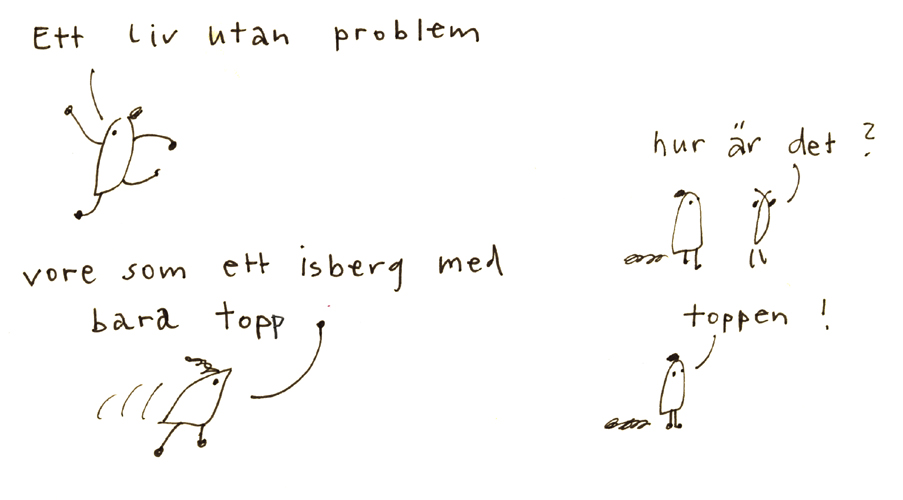 Ett liv utan problem
vore som ett isberg med
bara topp
hur är det?
toppen!